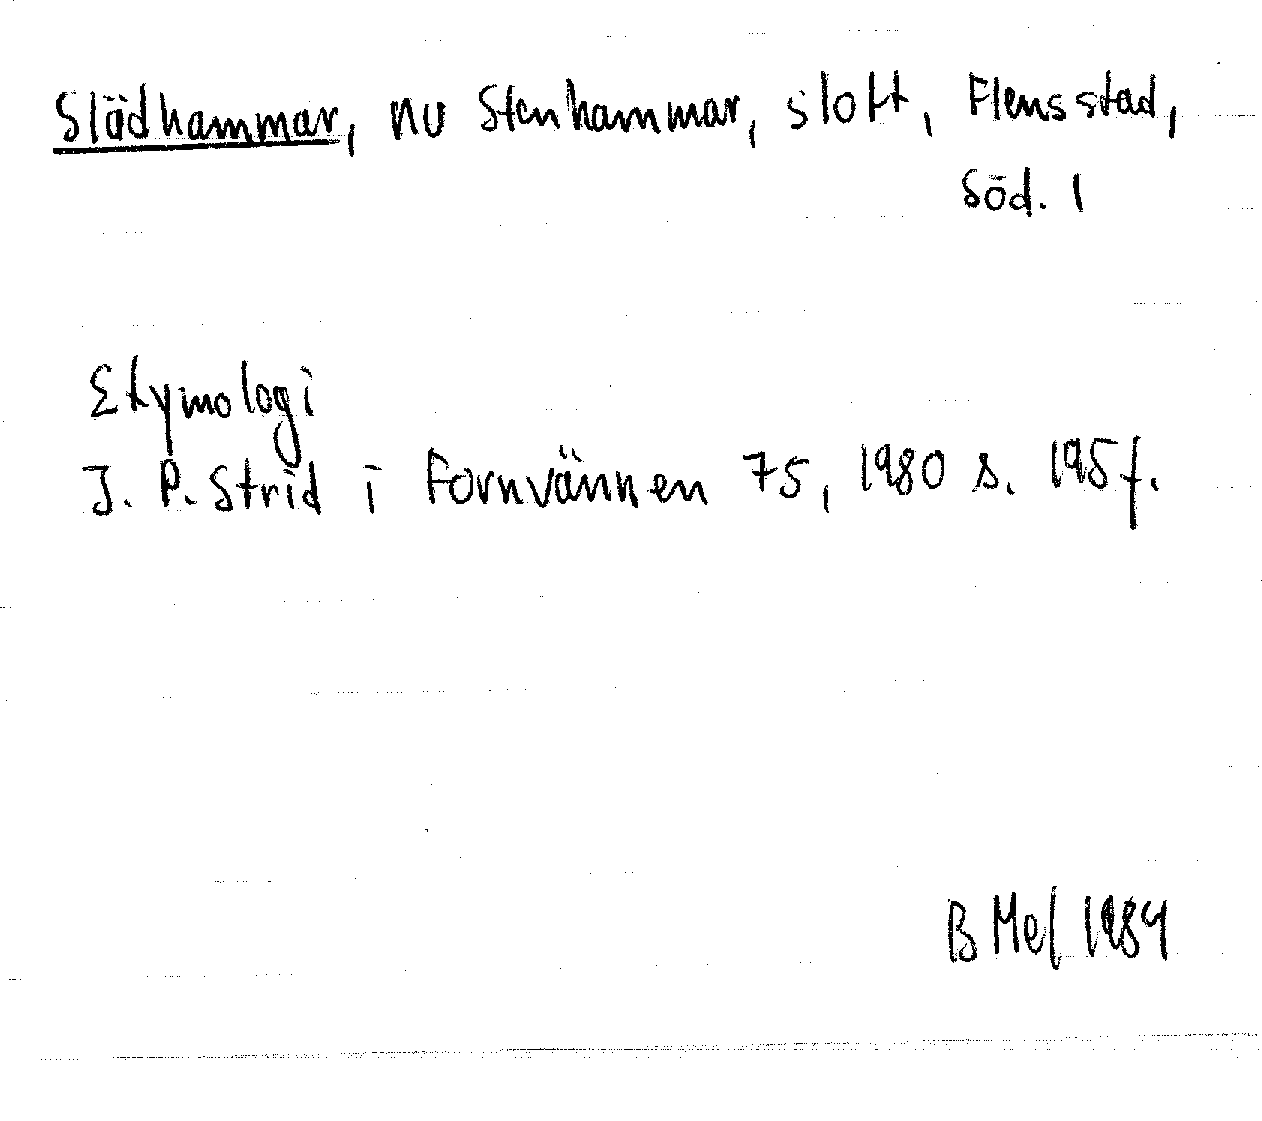 Slädhammar, nu Stenhammar, slott, Flens stad,
Söd. 1
Etymologi
J. P. Strid i Fornvännen 75, 1980 s. 195 f.
B Mel 1984